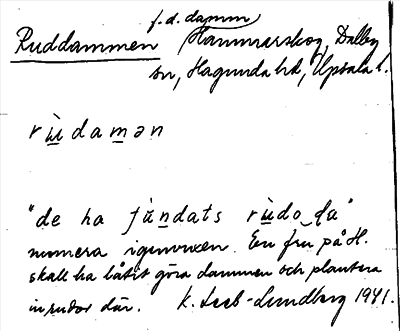 f.d. damm
Ruddammen Hammarskog, Dalby
sn, Hagunda hd, Upsala l.
rù̱dam̱ən
"de ha fùṉdats rù̱do ɖa"
numera igenvuxen. En fru på H.
skall ha låtit göra dammen och plantera
in rudor där. K. Leeb-Lundberg 1941.